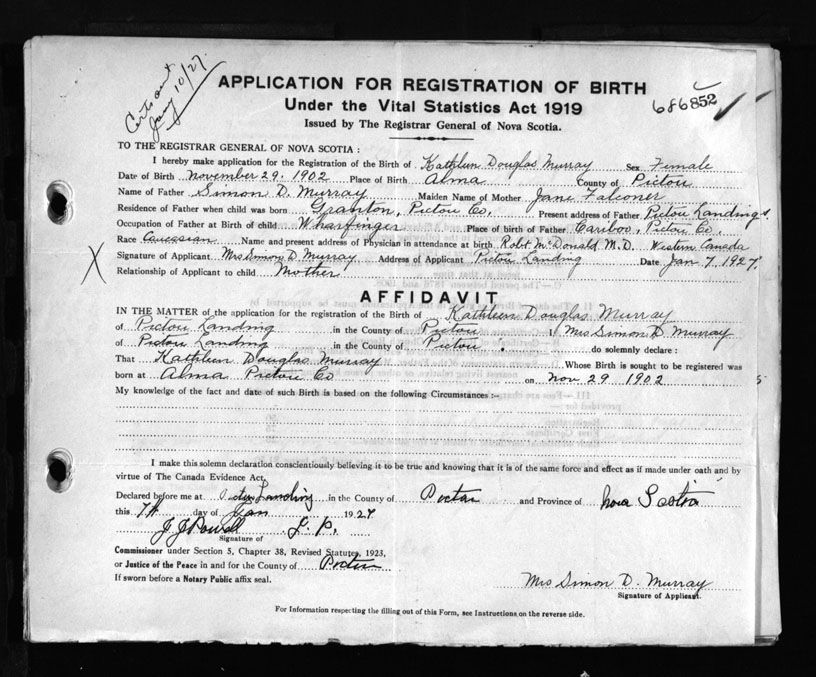 Certs out
Jany 10/27.
APPLICATION FOR REGISTRATION OF BIRTH
Under the Vital Statistics Act 1919
686852
Issued by The Registrar General of Nova Scotia.
TO THE REGISTRAR GENERAL OF NOVA SCOTIA:
I hereby make application for the Registration of the Birth of Kathleen Douglas Murray Sex Female
Date of Birth November 29. 1902 Place of Birth Alma County of Pictou
Name of Father Simon D. Murray Maiden Name of Mother Jane Falconer
Residence of Father when child was born Granton, Pictou Co. Present address of Father Pictou Landing
Occupation of Father at Birth of child Wharfinger Place of birth of Father Cariboo, Pictou Co.
Race Caucasian Name and present address of Physician in attendance at birth Robt McDonald M.D. Western Canada
X Signature of Applicant Mrs Simon D Murray Address of Applicant Pictou Landing Date Jan 7, 1927.
Relationship of Applicant to child Mother
AFFIDAVIT
IN THE MATTER of the application for the registration of the Birth of Kathleen Douglas Murray
of Pictou Landing in the County of Pictou I Mrs Simon D Murray
of Pictou Landing in the County of Pictou do solemnly declare:
That Kathleen Douglas Murray Whose Birth is sought to be registered was
born at Alma Pictou Co on Nov 29 1902
My knowledge of the fact and date of such Birth is based on the following Circumstances:-
I make this solemn declaration conscientiously believing it to be true and knowing that it is of the same force and effect as if made under oath and by
virtue of The Canada Evidence Act.
Declared before me at Pictou Landing in the County of Pictou and Province of Nova Scotia
this 7th day of Jan 1927
J J Powell J. P.
Signature of
Commissioner under Section 5, Chapter 38, Revised Statutes, 1923,
or Justice of the Peace in and for the County of Pictou
If sworn before a Notary Public affix seal.
Mrs Simon D. Murray
Signature of Applicant.
For Information respecting the filling out of this Form, see Instructions on the reverse side.